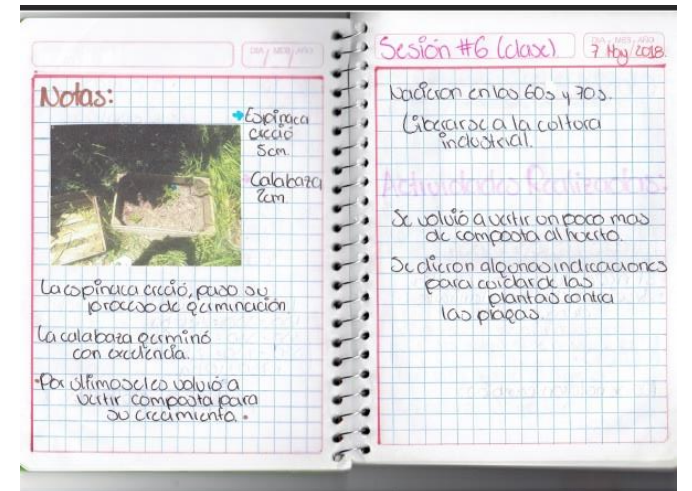 DIA / MES / AÑO
Notas:
Espinaca
creció
5cm.
Calabaza
2cm.
La espinaca creció, paso su
proceso de germinación.
La calabaza germinó
con excelencia.
•Por ultimo se les volvió a
vertir composta para
su crecimiento.•
Sesión #6 (clase)
DIA / MES / AÑO
7 May 2018
Nacieron en los 60s y 70s.
Liberarse a la coltora
industrial.
Actividades Realizadas:
Se volvió a vertir un poco mas
de composta al huerto.
Se dieron algunas indicaciones
para cuidar de las
plantas contra
las plagas.